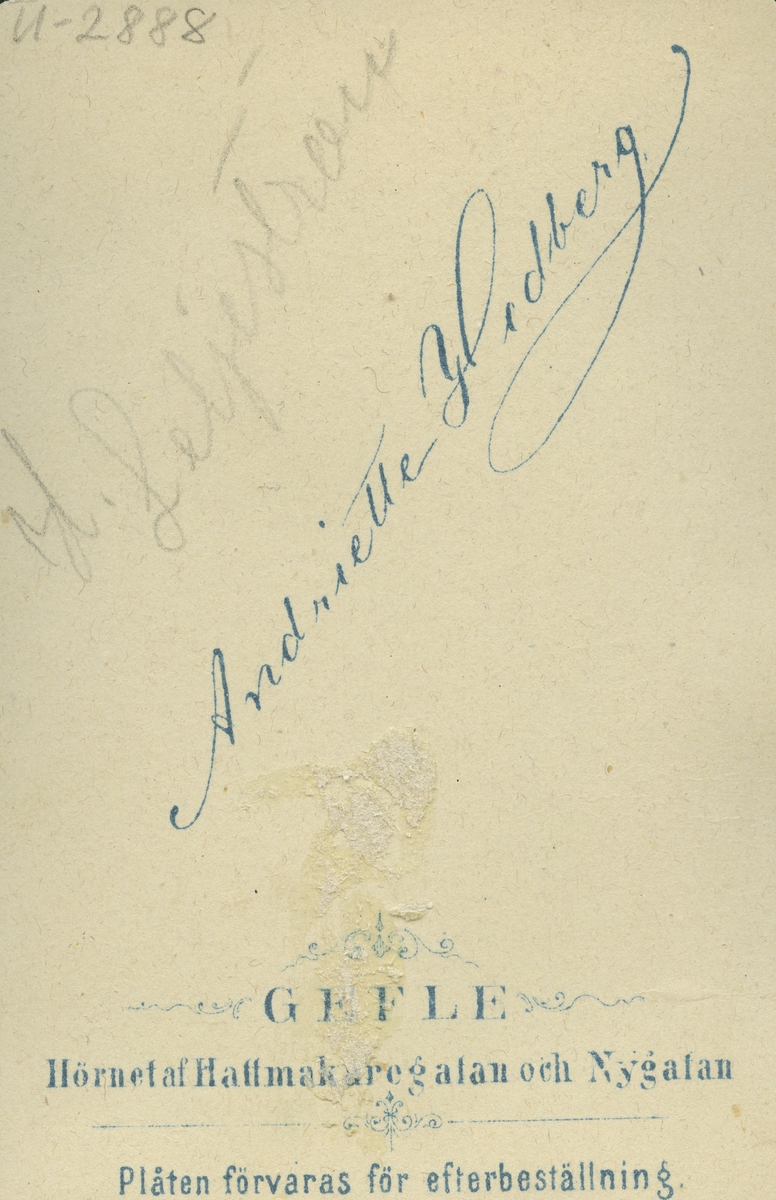 U-2888
H. Liljeström
Andriette Widberg
GEFLE
Hörnet af Hattmakaregatan och Nygatan
Plåten förvaras för efterbeställning.